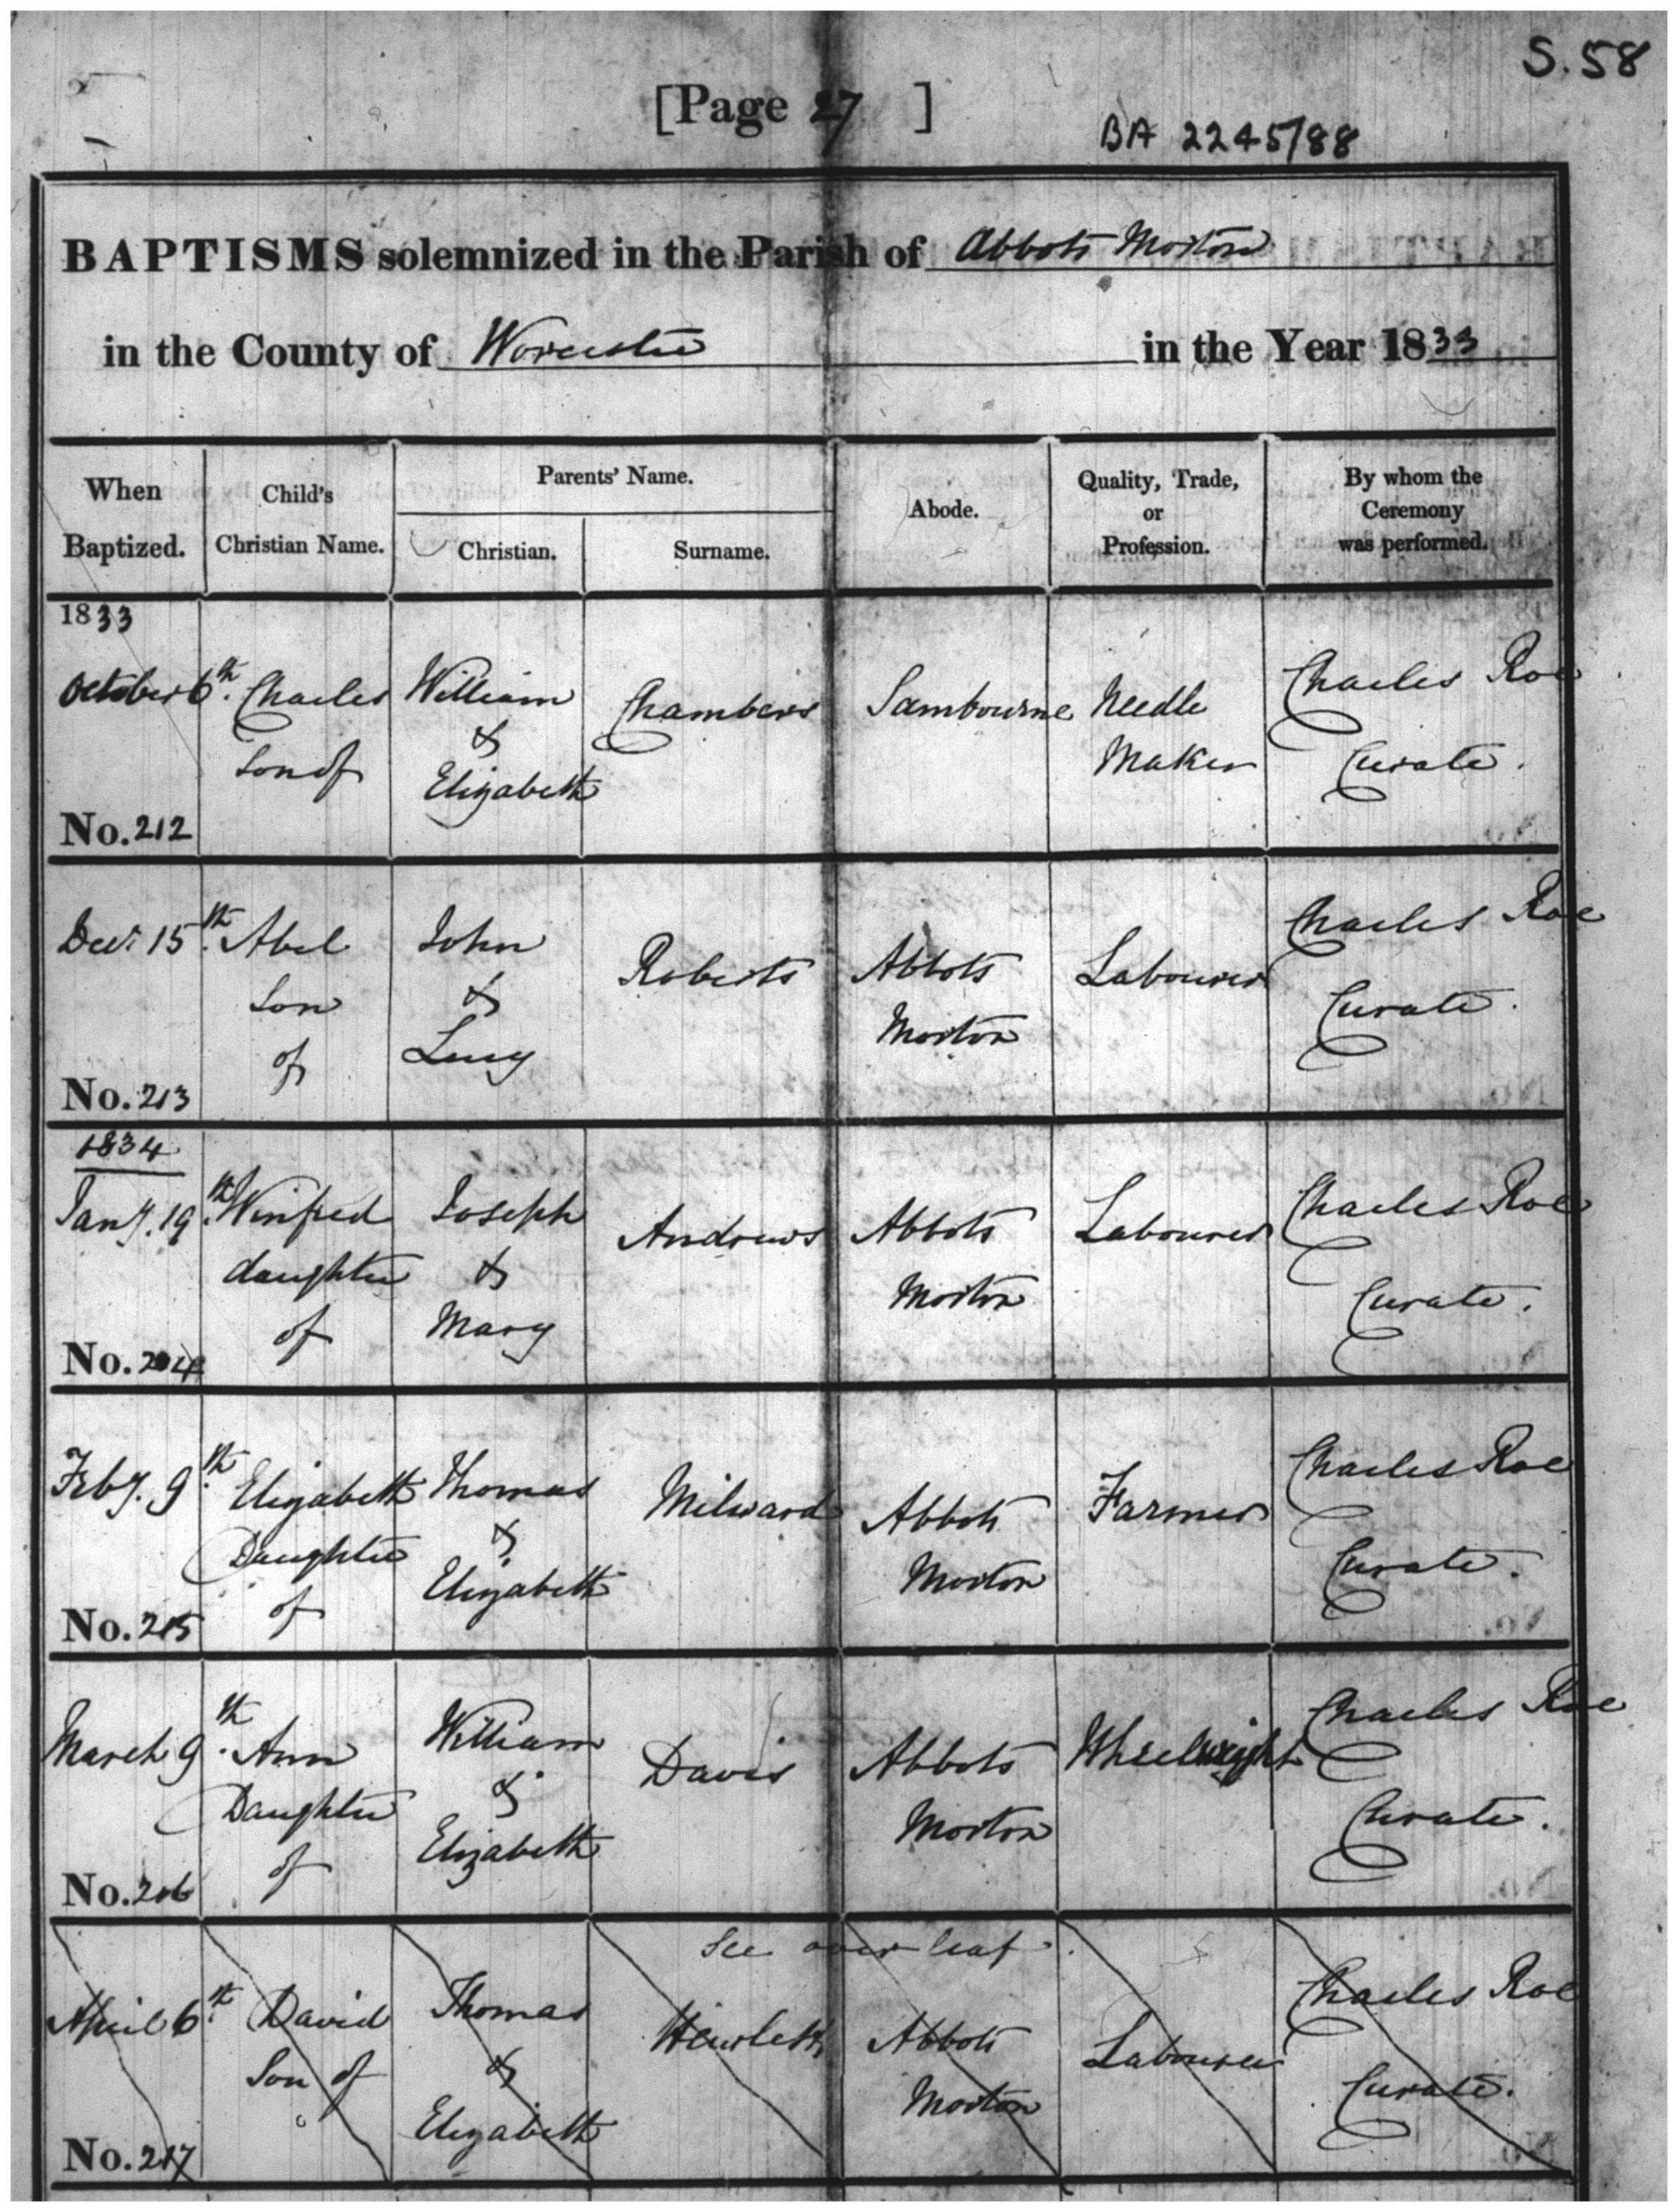 S.58
[Page 27 ]
BA 2245/88
BAPTISMS solemnized in the Parish of Abbots Morton
in the County of Worcester in the Year 1833
When Baptized.
Child's Christian Name.
Parents' Name.
Christian.
Surname.
Abode.
Quality, Trade, or Profession.
By whom the Ceremony was performed.
1833
October 6th. Charles William Chambers Sambourne Needle Charles Roe
Son of & Elizabeth Maker Curate.
No. 212
Decr 15th. Abel John Roberts Abbots Labourer Charles Roe
Son & Morton Curate.
of Lucy
No. 213
1834
Jany. 19th. Winifred Joseph Andrews Abbots Labourer Charles Roe
daughter & Morton Curate.
of Mary
No. 214
Feby. 9th. Elizabeth Thomas Milward Abbots Farmer Charles Roe
Daughter & Morton Curate.
of Elizabeth
No. 215
March 9th. Ann William Davis Abbots Wheelwright Charles Roe
Daughter & Morton Curate.
of Elizabeth
No. 216
See over leaf.
April 6th. David Thomas Hewlett Abbots Labourer Charles Roe
Son of & Morton Curate.
Elizabeth
No. 217